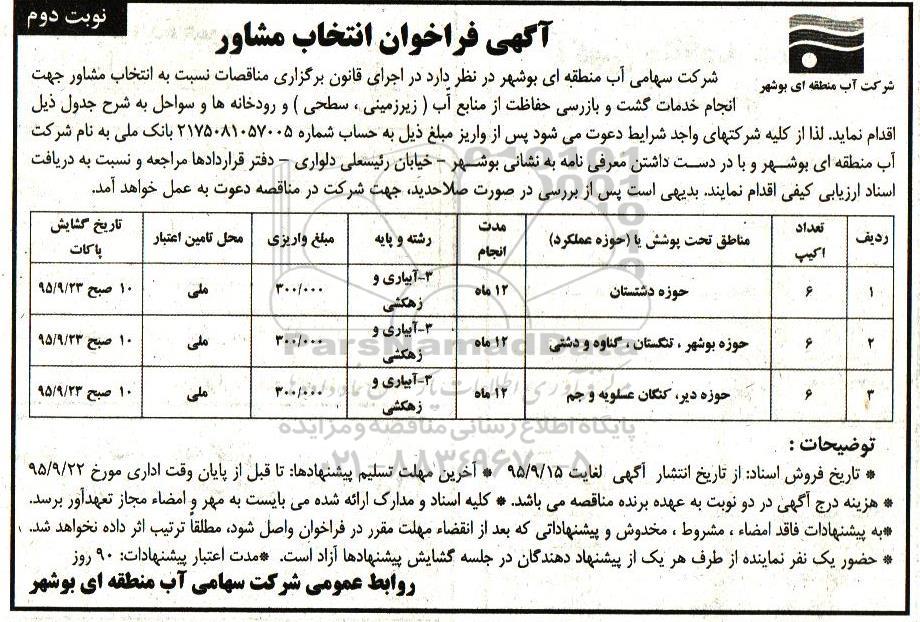 نوبت دوم
آگهی فراخوان انتخاب مشاور
شرکت آب منطقه ای بوشهر
شرکت سهامی آب منطقه ای بوشهر در نظر دارد در اجرای قانون برگزاری مناقصات نسبت به انتخاب مشاور جهت
انجام خدمات گشت و بازرسی حفاظت از منابع آب ( زیرزمینی ، سطحی ) و رودخانه ها و سواحل به شرح جدول ذیل
اقدام نماید. لذا از کلیه شرکتهای واجد شرایط دعوت می شود پس از واریز مبلغ ذیل به حساب شماره ۲۱۷۵۰۸۱۰۵۷۰۰۵ بانک ملی به نام شرکت
آب منطقه ای بوشهر و با در دست داشتن معرفی نامه به نشانی بوشهر – خیابان رئیسعلی دلواری – دفتر قراردادها مراجعه و نسبت به دریافت
اسناد ارزیابی کیفی اقدام نمایند. بدیهی است پس از بررسی در صورت صلاحدید، جهت شرکت در مناقصه دعوت به عمل خواهد آمد.
ردیف تعداد اکیپ مناطق تحت پوشش یا (حوزه عملکرد) مدت انجام رشته و پایه مبلغ واریزی محل تامین اعتبار تاریخ گشایش پاکات
۱ ۶ حوزه دشتستان ۱۲ ماه ۳-آبیاری و زهکشی ۳۰۰/۰۰۰ ملی ۱۰ صبح ۹۵/۹/۲۳
۲ ۶ حوزه بوشهر ، تنگستان ، گناوه و دشتی ۱۲ ماه ۳-آبیاری و زهکشی ۳۰۰/۰۰۰ ملی ۱۰ صبح ۹۵/۹/۲۳
۳ ۶ حوزه دیر، کنگان عسلویه و جم ۱۲ ماه ۳-آبیاری و زهکشی ۳۰۰/۰۰۰ ملی ۱۰ صبح ۹۵/۹/۲۳
ParsNamadData
پایگاه اطلاع رسانی مناقصه و مزایده
۰۲۱-۸۸۳۴۹۶۷۰-۵
توضیحات :
* تاریخ فروش اسناد: از تاریخ انتشار آگهی لغایت ۹۵/۹/۱۵ * آخرین مهلت تسلیم پیشنهادها: تا قبل از پایان وقت اداری مورخ ۹۵/۹/۲۲
* هزینه درج آگهی در دو نوبت به عهده برنده مناقصه می باشد. * کلیه اسناد و مدارک ارائه شده می بایست به مهر و امضاء مجاز تعهدآور برسد.
*به پیشنهادات فاقد امضاء ، مشروط ، مخدوش و پیشنهاداتی که بعد از انقضاء مهلت مقرر در فراخوان واصل شود، مطلقاً ترتیب اثر داده نخواهد شد.
* حضور یک نفر نماینده از طرف هر یک از پیشنهاد دهندگان در جلسه گشایش پیشنهادها آزاد است. *مدت اعتبار پیشنهادات: ۹۰ روز
روابط عمومی شرکت سهامی آب منطقه ای بوشهر